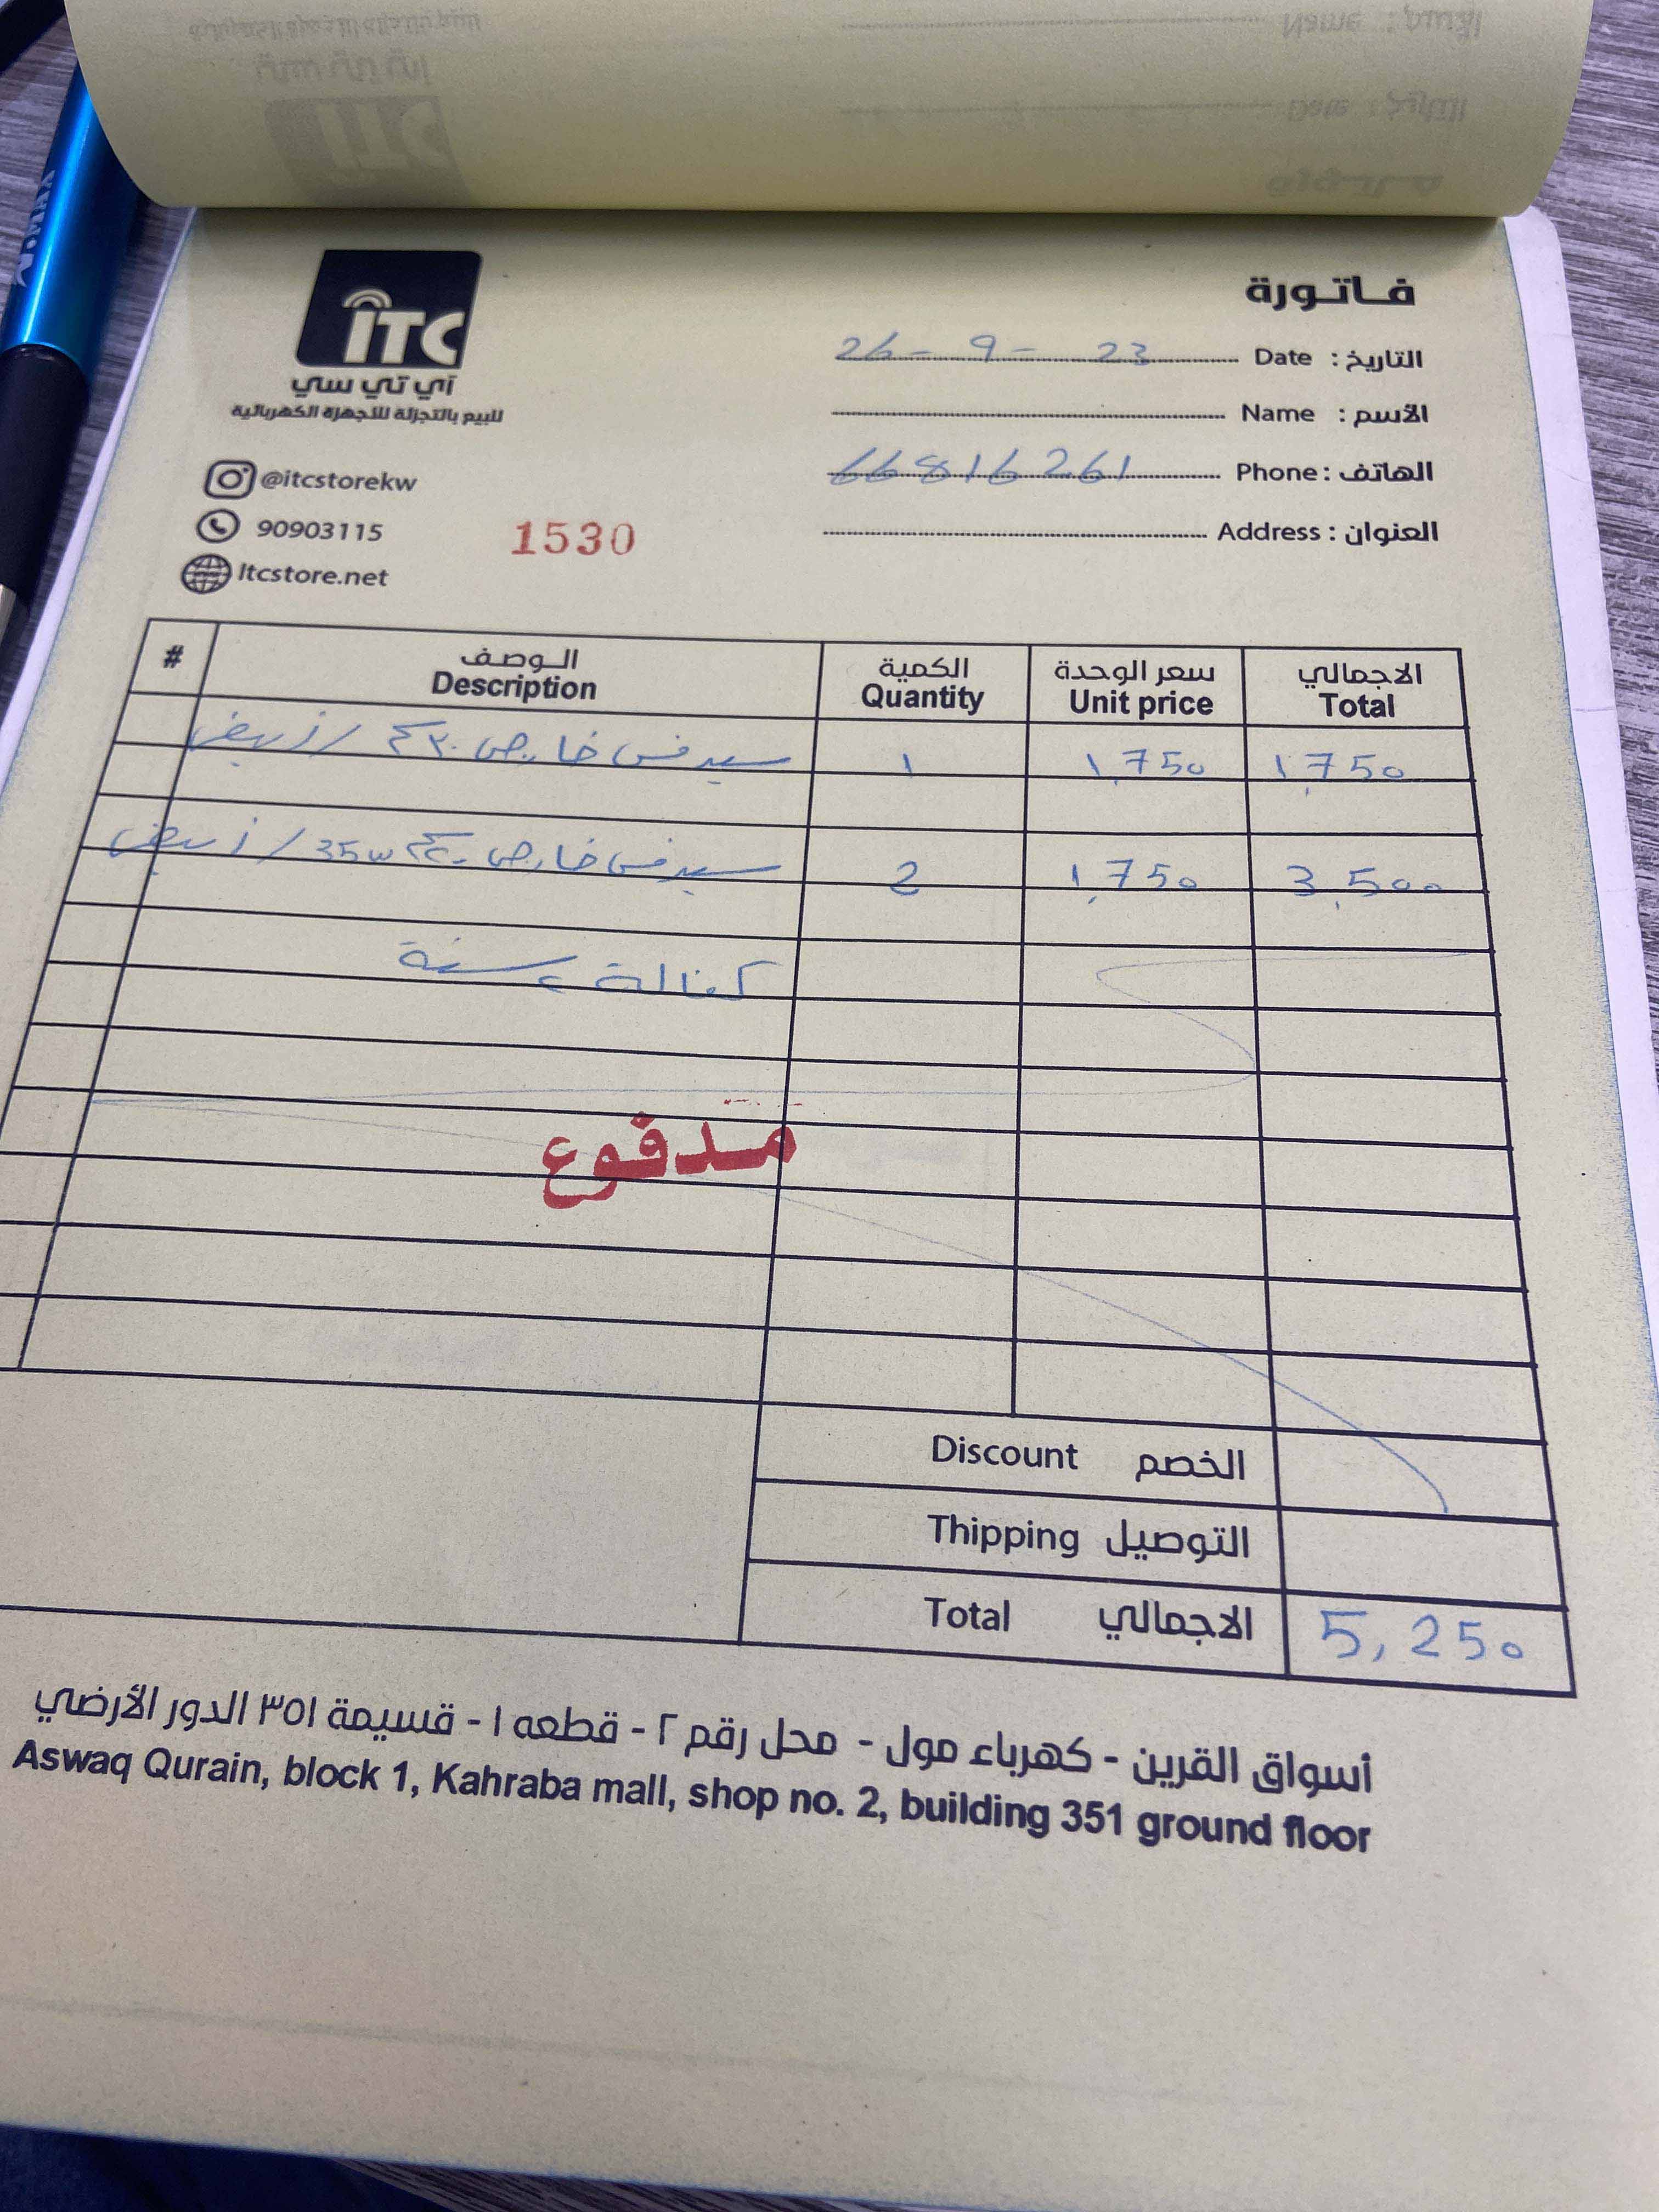 ITC
آي تي سي
للبيع بالتجزئة للأجهزة الكهربائية
@itcstorekw
90903115
Itcstore.net
1530
فاتورة
التاريخ : Date 26 - 9 - 23
الأسم : Name
الهاتف : Phone 66816261
العنوان : Address
# الوصف Description الكمية Quantity سعر الوحدة Unit price الاجمالي Total
خارجي ٣٠ / ابيض ١ ١,750 ١,750
خارجي 35w / ابيض 2 ١,750 3,500
كفالة ٢ سنة
مدفوع
Discount الخصم
Thipping التوصيل
Total الاجمالي 5,250
أسواق القرين - كهرباء مول - محل رقم ٢ - قطعه ١ - قسيمة ٣٥١ الدور الأرضي
Aswaq Qurain, block 1, Kahraba mall, shop no. 2, building 351 ground floor